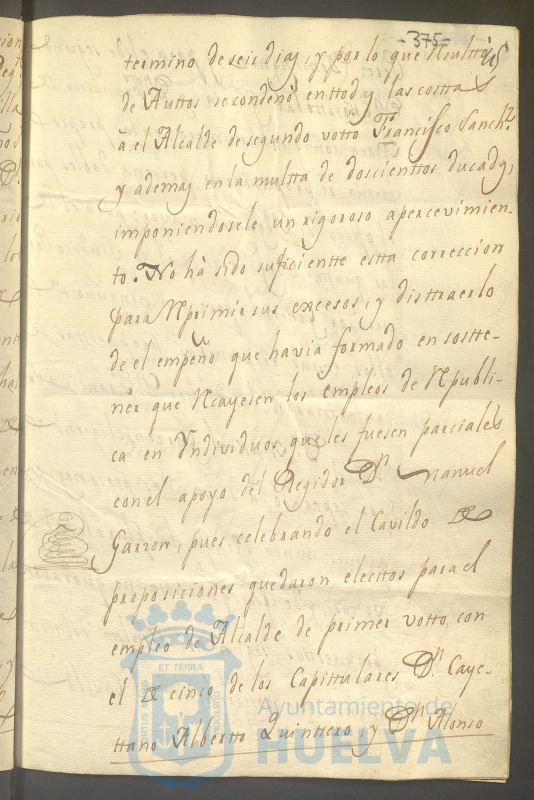 -375-
termino de seis dias, y por lo que Resultta
de Auttos se condenó en ttodas las costtas
â el Alcalde de segundo votto Francisco Sanchz.
y ademas en la multta de doscienttos ducados,
imponiendosele un rigoroso apercevimien-
to. No há sido suficientte estta correccion
para Reprimir sus excesos, y disttraerlo
de el empeño que havia formado en sostte-
ner que Recayesen los empleos de Republi-
ca en Yndividuos que les fuesen parciales
con el apoyo del Regidor Dn. Manuel
Garzon, pues celebrando el Cavildo de
proposiciones quedaron electtos para el
empleo de Alcalde de primer votto, con
el de cinco de los Capittulares Dn. Caye-
ttano Albertto Quinttero y Dn. Alonso
ET TERRA
PORTUS MARIS
CUSTODIA
Ayuntamiento de
HUELVA